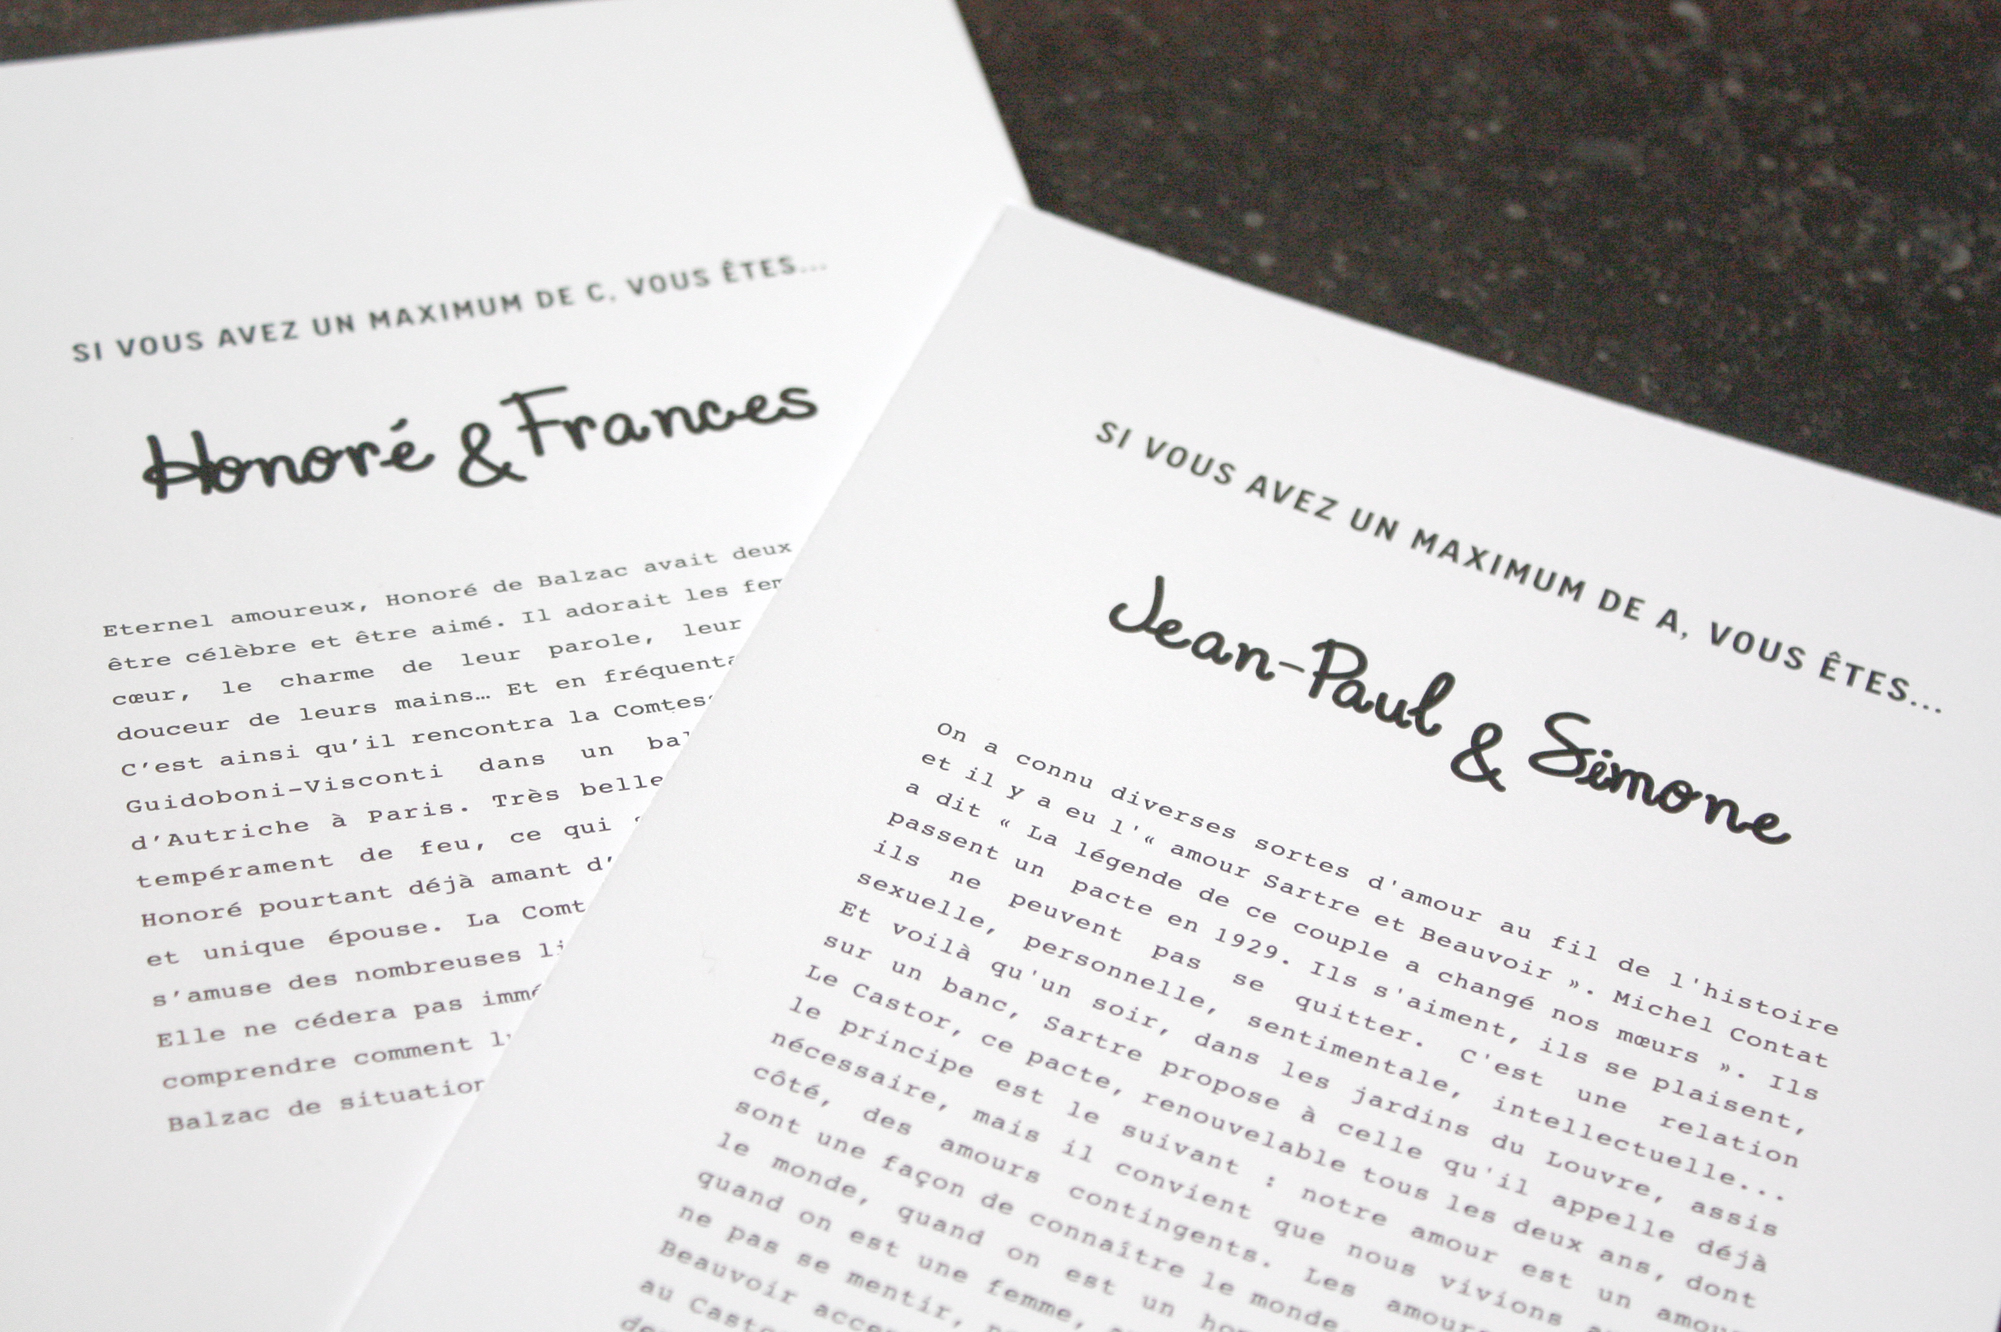 SI VOUS AVEZ UN MAXIMUM DE C, VOUS ÊTES...
Honoré & Frances
Eternel amoureux, Honoré de Balzac avait deux
être célèbre et être aimé. Il adorait les
cœur, le charme de leur parole, leur
douceur de leurs mains… Et en
C'est ainsi qu'il rencontra la
Guidoboni-Visconti dans un
d'Autriche à Paris. Très belle
tempérament de feu, ce qui
Honoré pourtant déjà amant
et unique épouse. La
s'amuse des nombreuses
Elle ne cédera pas
comprendre comment
Balzac de
SI VOUS AVEZ UN MAXIMUM DE A, VOUS ÊTES...
Jean-Paul & Simone
On a connu diverses sortes d'amour au fil de l'histoire
et il y a eu l'« amour Sartre et Beauvoir ». Michel Contat
a dit « La légende de ce couple a changé nos mœurs ». Ils
passent un pacte en 1929. Ils s'aiment, ils se plaisent,
ils ne peuvent pas se quitter. C'est une relation
sexuelle, personnelle, sentimentale, intellectuelle...
Et voilà qu'un soir, dans les jardins du Louvre, assis
sur un banc, Sartre propose à celle qu'il appelle déjà
Le Castor, ce pacte, renouvelable tous les deux ans, dont
le principe est le suivant : notre amour est un amour
nécessaire, mais il convient que nous vivions
côté, des amours contingents. Les
sont une façon de connaître le monde.
le monde, quand on est un
quand on est une femme,
ne pas se mentir,
Beauvoir
au